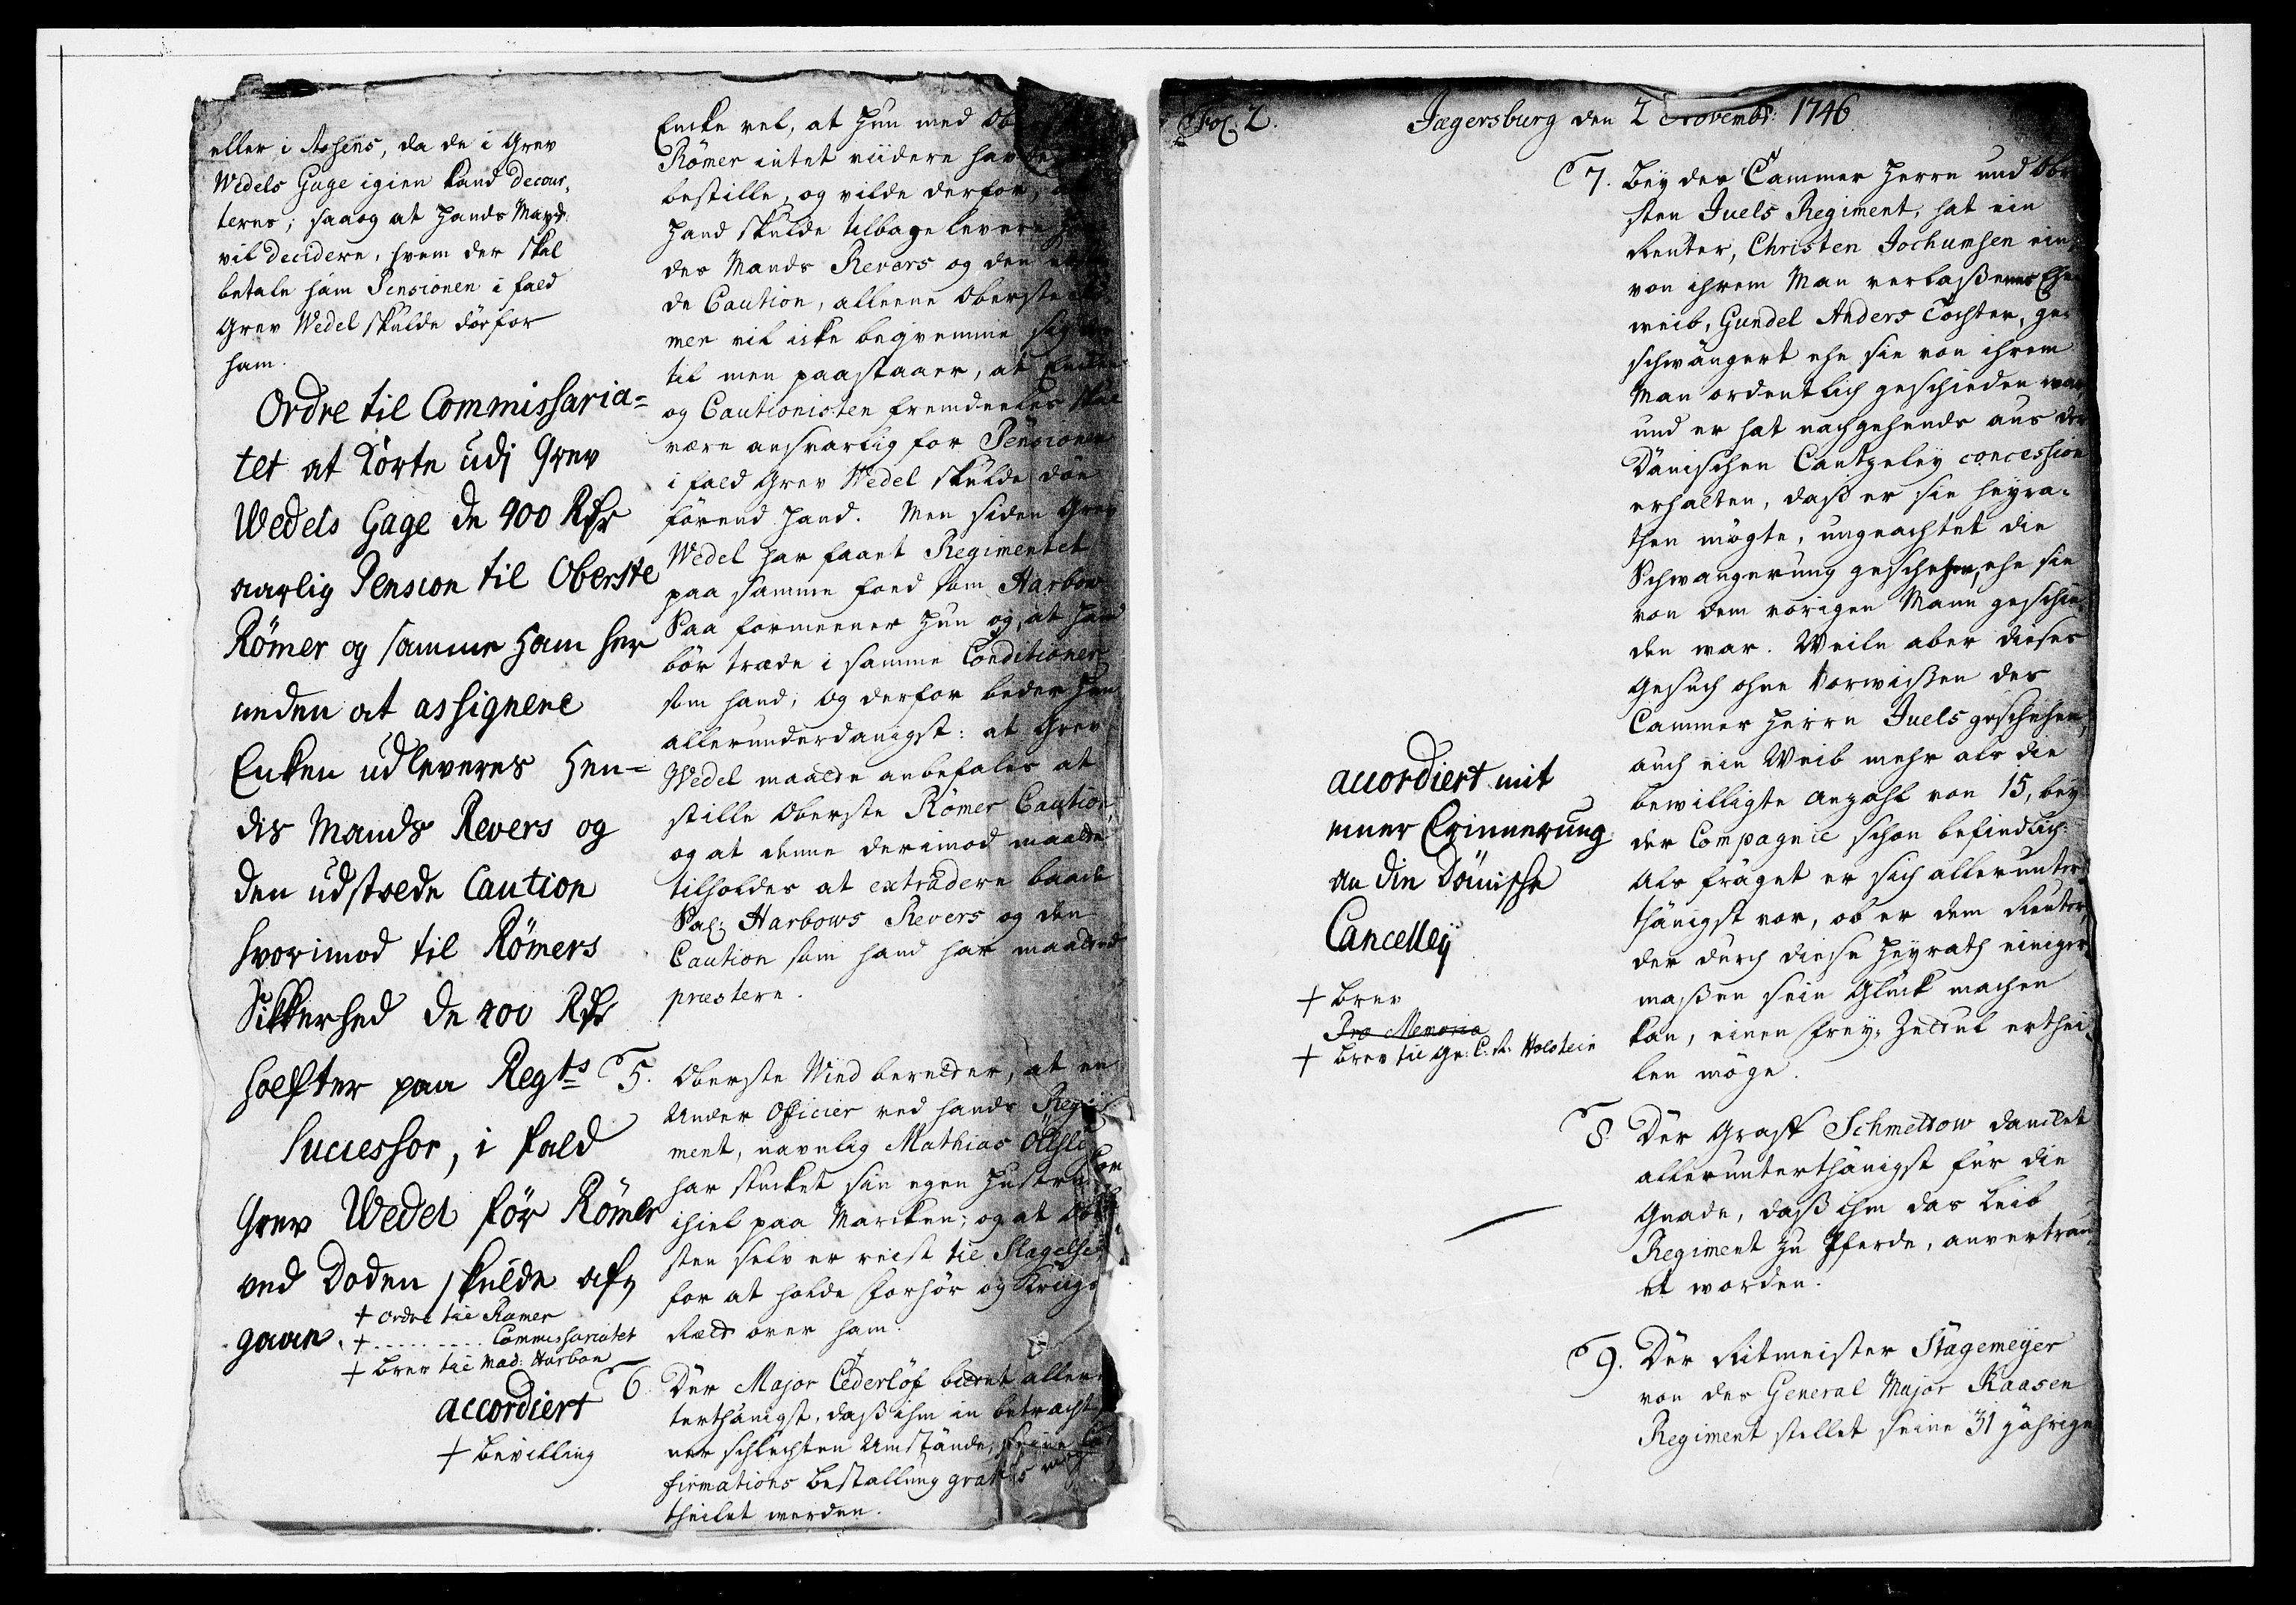 eller i Assens, da de i Grev
Wedels Gage igien kand decour,
teres; saaog at hands Mayst:
vil decidere, hvem der skal
betale ham Pensionen i fald
Grev Wedel skulde döe for
ham.
Ordre til Commissaria=
tet at korte udj Grev
Wedels Gage de 400 Rdr
aarlig Pension til Oberste
Römer og samme ham her
neden at assignere
Enken udleveres hen=
des Mands Revers og
den udstædte Caution
hvorimod til Römers
Sikkerhed de 400 Rdr
hæfter paa Regts
Successor, i fald
Grev Wedel för Römer
ved Döden skulde afg
gaae.
+ ordre til Römer
+ ......... Commissariatet
+ brev til Mad: Harboe
accordiert
+ bevilling
Encke vel, at hun med
Römer intet viidere har
bestille, og vilde derfor,
hand skulde tilbage levere
des Mands Revers og den
de Caution, alleene Oberste Rö
mer vil icke beqvemme sig der
til men paastaaer, at Encken
og Cautionisten fremdeeles skal
være ansvarlig for Pensionen
i fald Grev Wedel skulde döe
förend hand. Men siden Grev
Wedel har faaet Regimentet
paa samme foed som Harbow
Saa formeener hun og, at hand
bör træde i samme Conditioner
som hand, og derfor beder hun
allerunderdanigst: at Grev
Wedel maatte anbefales at
stille Oberste Römer Caution,
og at denne derimod maatte
tilholdes at extradere baade
Sal: Harbows Revers og den
Caution som hand har maattet
præstere.
5. Oberste Wind beretter, at en
Under Officier ved hands Regi
ment, navnlig Mathias
har stucket sin egen Hustru
ihiel paa Marcken; og at Ober
sten selv er reist til Slagelse
for at holde forhör og Krigs
Rætt over ham.
6. Der Major Cederlöf bittet allerun
terthänigst, daß ihm in betracht
ner schlechten Umstände, seine Con
firmations bestallung gratis
theilet werden.
Fol: 2. Jægersburg den 2 Novembr: 1746
7. Bey des Cammer Herrn und Obr
sten Juels Regiment, hat ein
Reuter, Christen Jochumsen ein
von ihrem Man verlaßenes Ehe
weib, Gundel Anders Tochter, ge
schwängert ehe sie von ihrem
Man ordentlich geschieden war
und er hat nachgehends aus der
Dänischen Cantzeley concession
erhalten, daß er sie heyra=
then mögte, ungeachtet die
Schwangerung geschehen, ehe sie
von dem vorigen Mann geschie
den war. Weile aber dieses
Gesuch ohne Vorwißen des
Cammer Herrn Juels geschehen,
auch ein Weib mehr als die
bewilligte Anzahl von 15, bey
der Compagnie schon befindlich:
Als fräget er sich allerunter
thänigst vor, ob er dem Reuter
der durch diese Heyrath einiger
maßen sein Glück machen
kan, einen Frey: Zettul erthei
len möge.
accordiert mit
einer Erinnerung
an die Dänische
Cancelley
+ brev
Pro Memoria
+ brev til Gr: C: R: Holstein
8. Der Graff Schmettow dancket
allerunterthänigst für die
Gnade, daß ihm das Leib
Regiment zu Pferde, anvertrau
et worden.
9. Der Ritmeister Stagemeyer
von des General Major Kaasen
Regiment stellet seine 31 jährige